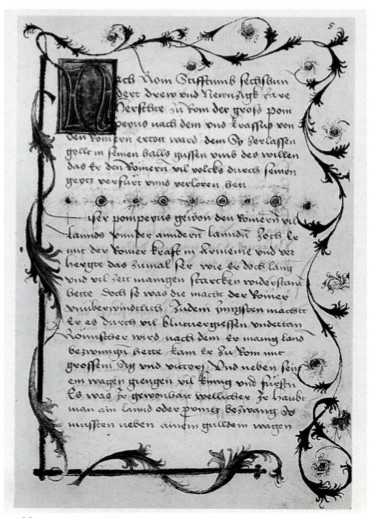 Nach Rom Stifftund sechshun
dert drew und Newnzigk Jare
Herschte zu Rom der gross pom
peyus nach dem und krassus von
den Romern ertott ward dem Sy zerlassen
gollt in seinen halls gussen umb des willen
das Er den Romern vil volcks durch seinen
geytz verfurt und verloren hett
iser pompeyus gewon den Romern vil
lannds under anndern lannden Zoch Er
mit der Romer kraft in Armenie und ver
hergte das zumal ser wie Er doch lang
und vil zeit manigen starcken widerstand
hette Doch so was die macht der Romer
unuberwindtlich Zudem Jungsten machte
Er es durch vil blutvergiessen undertan
Romischer nach dem Er manig land
bezwungen hette kam Er zu Rom mit
grossem Sig und victory Und neben sein
em wagen giengen vil kunig und fursten
Es was Je gewonhait wellicher Je haubt
man ain lannd oder bezwang So
mussten neben ainem gulldem wagen